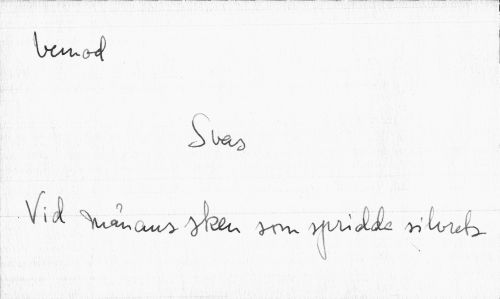 vemod
Svas
Vid månans sken som spridde silvrets